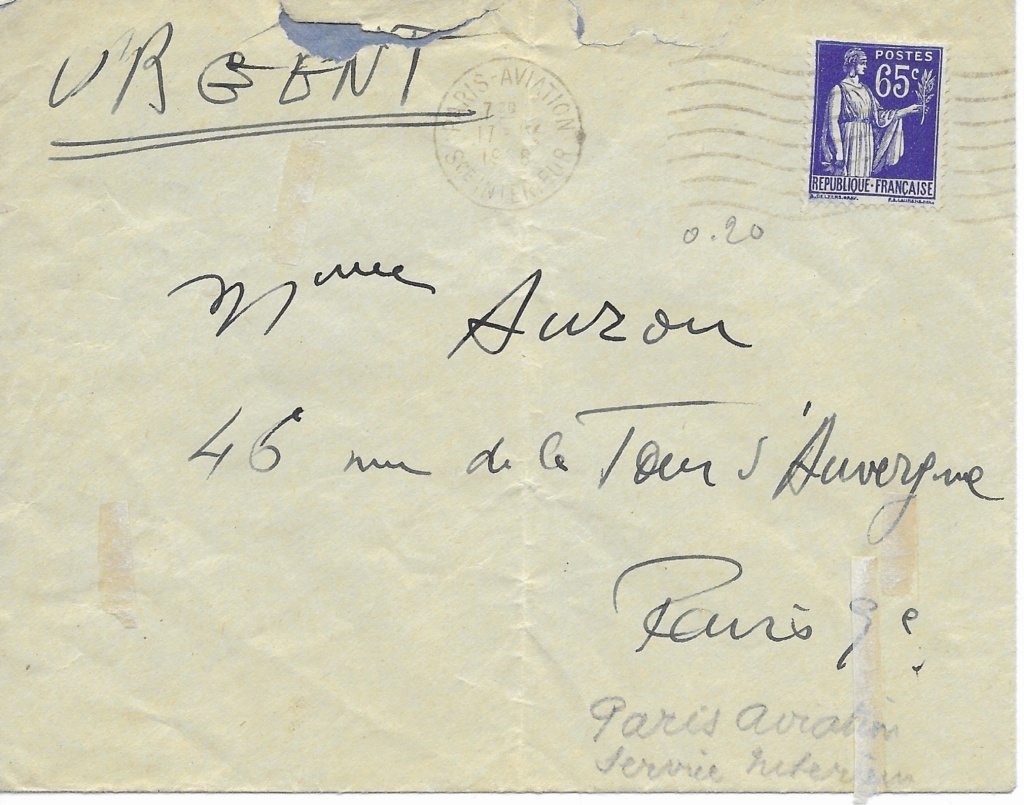 URGENT
PARIS-AVIATION
17
19
SCE INTERIEUR
POSTES
65c
REPUBLIQUE·FRANÇAISE
0.20
Mme Auzon
46 rue de la Tour d'Auvergne
Paris 9e
Paris aviation
Service Interieur